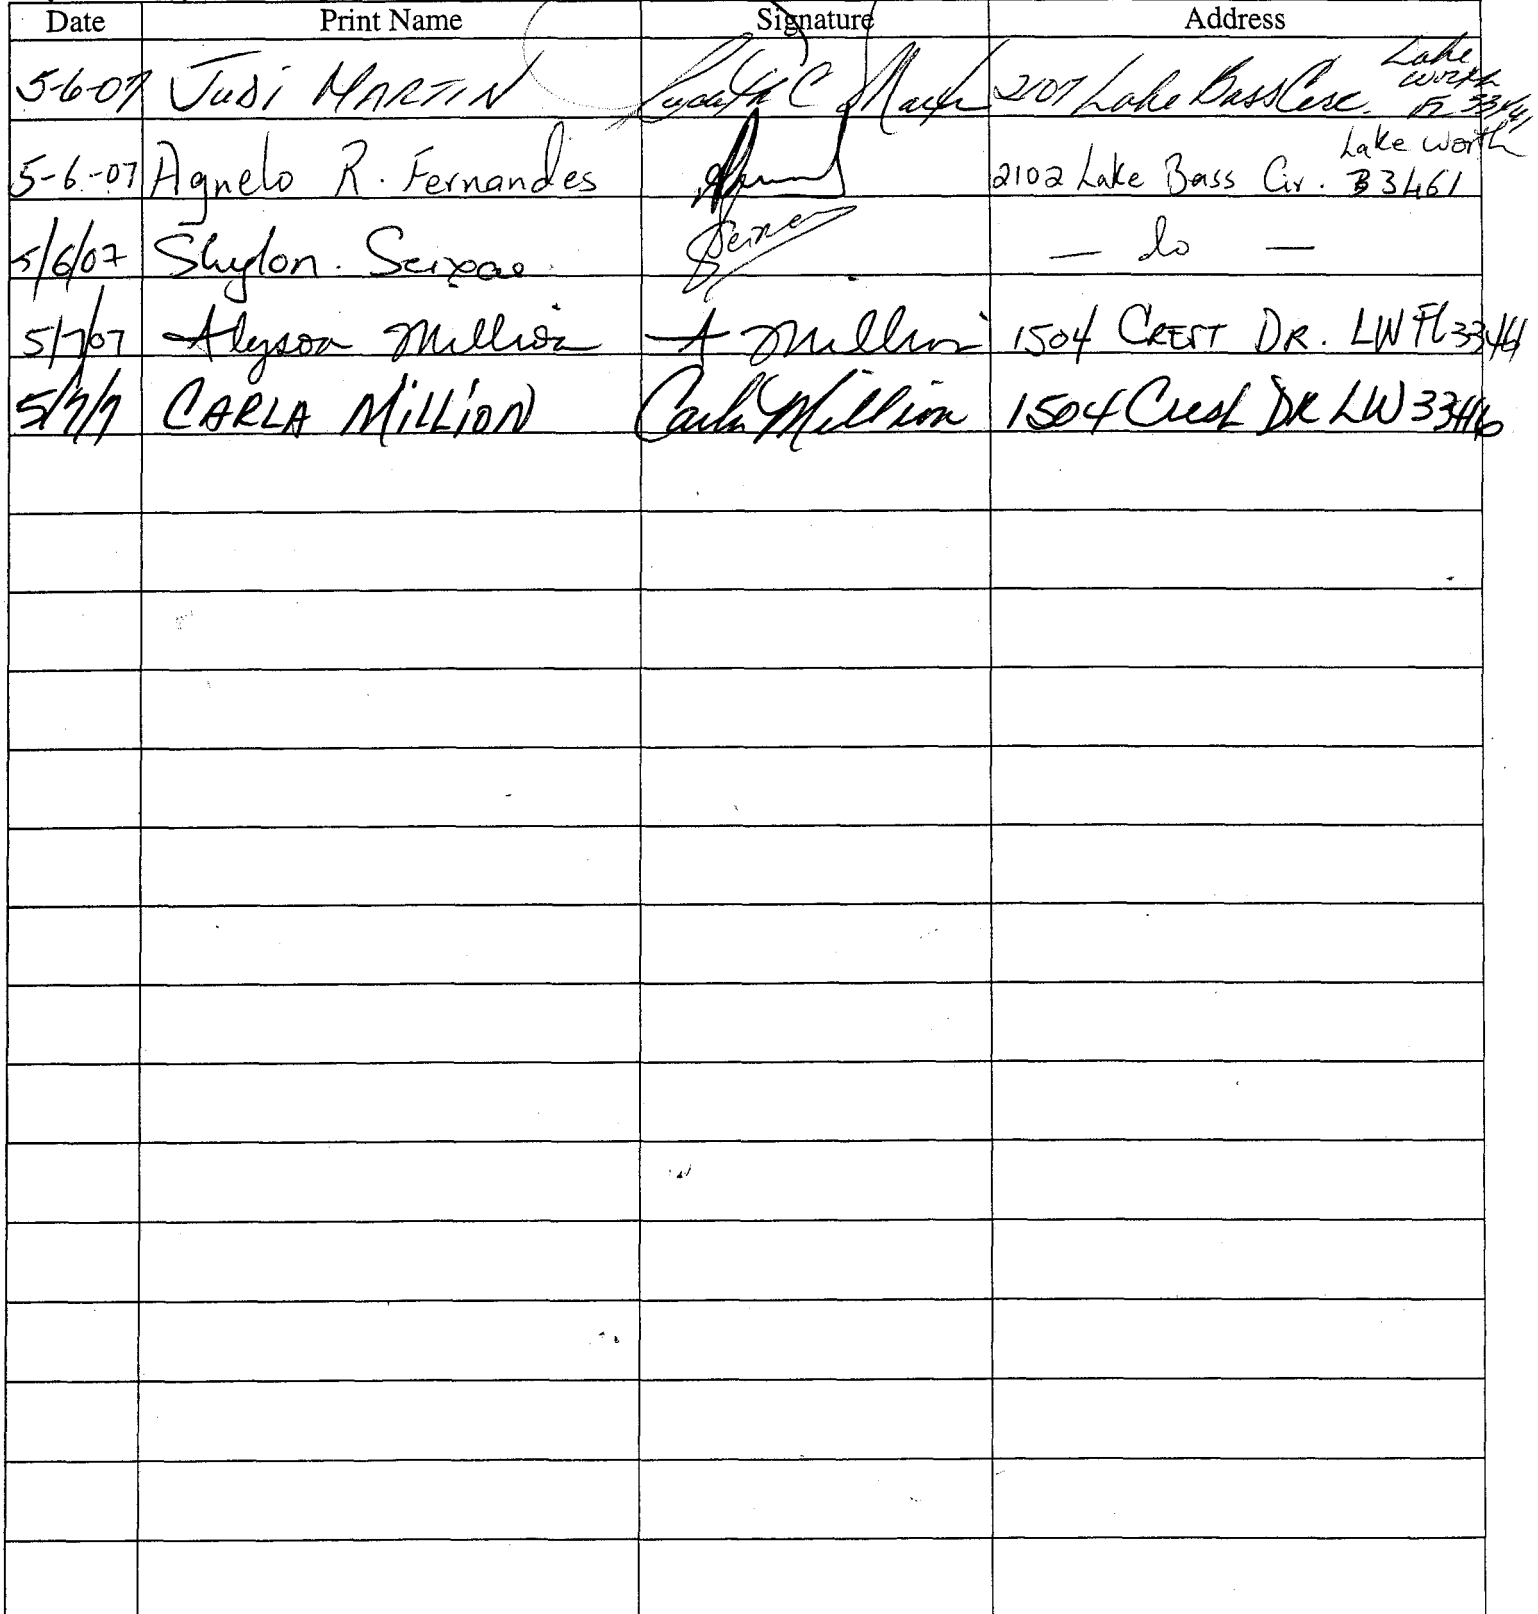 Date Print Name Signature Address
5-6-07 JUDI MARTIN Judith C Martin 2107 Lake Bass Circ. Lake Worth Fl 33461
5-6-07 Agnelo R. Fernandes 2102 Lake Bass Cir. Lake Worth 33461
5/6/07 Shylon. Seixas. Seixas — do —
5/7/07 Alyson Million A Million 1504 CREST DR. LW Fl 33461
5/7/7 CARLA MILLION Carla Million 1504 Crest DR LW 33416